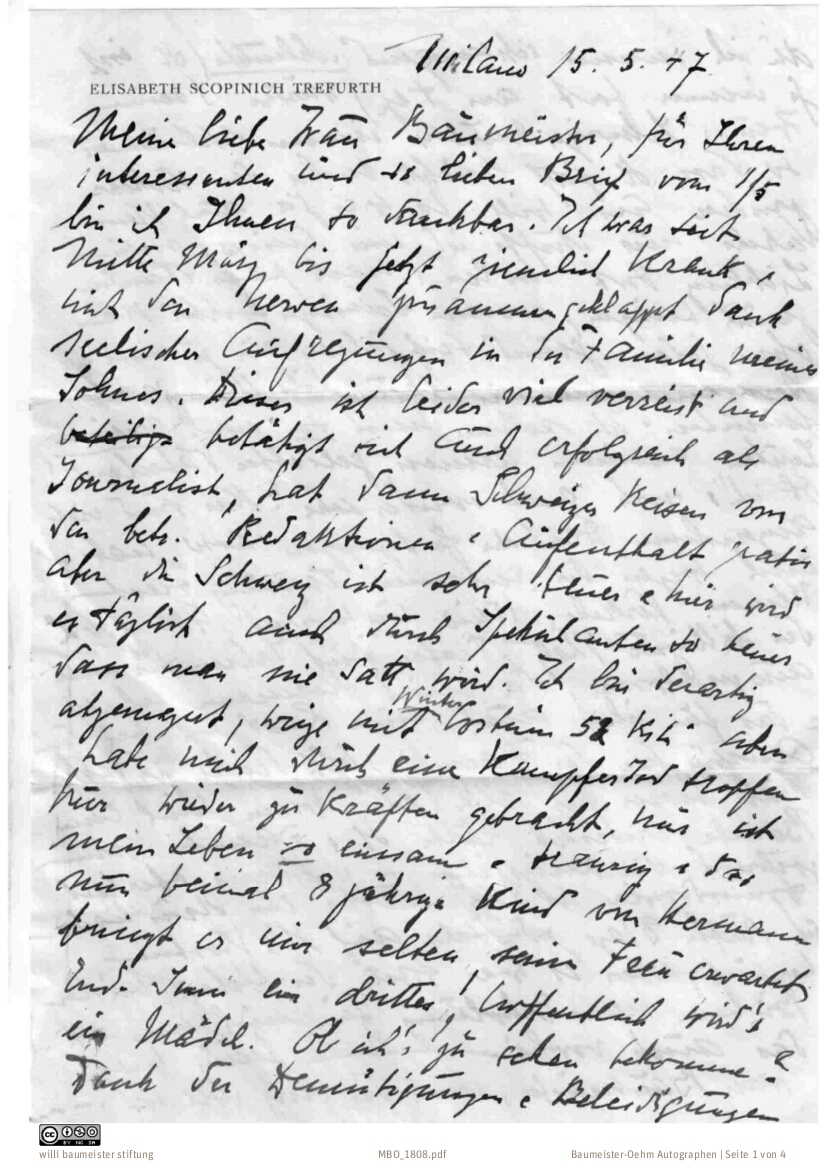 Milano 15. 5. 47.
ELISABETH SCOPINICH TREFURTH
Meine liebe Frau Baumeister, für Ihren
interessanten und so lieben Brief vom 1/5
bin ich Ihnen so dankbar. Ich war seit
Mitte März bis jetzt ziemlich krank,
mit den Nerven zusammengeklappt dank
seelischer Aufregungen in der Familie meines
Sohnes. Dieser ist leider viel verreist und
beteilig betätigt sich auch erfolgreich als
Journalist, hat dann Schweizer Reisen von
den betr. Redaktionen e Aufenthalt gratis
aber die Schweiz ist sehr teuer e hier wird
es täglich auch durch Spekulanten so teuer
dass man nie satt wird. Ich bin derartig
abgemagert, wiege mit Winter Costüm 52 Kilo aber
habe mich durch eine Kampfer Jod tropfen
Kur wieder zu Kräften gebracht, nur ist
mein Leben so einsam e traurig e das
nun beinah 8 jährige Kind von Hermann
bringt er mir selten, seine Frau erwartet
Ende Juni ein drittes, hoffentlich wird's
ein Mädel. Ob ich's zu sehen bekomme?
Dank der Demütigungen e Beleidigungen
CC BY NC SA
willi baumeister stiftung
MBO_1808.pdf
Baumeister-Oehm Autographen | Seite 1 von 4